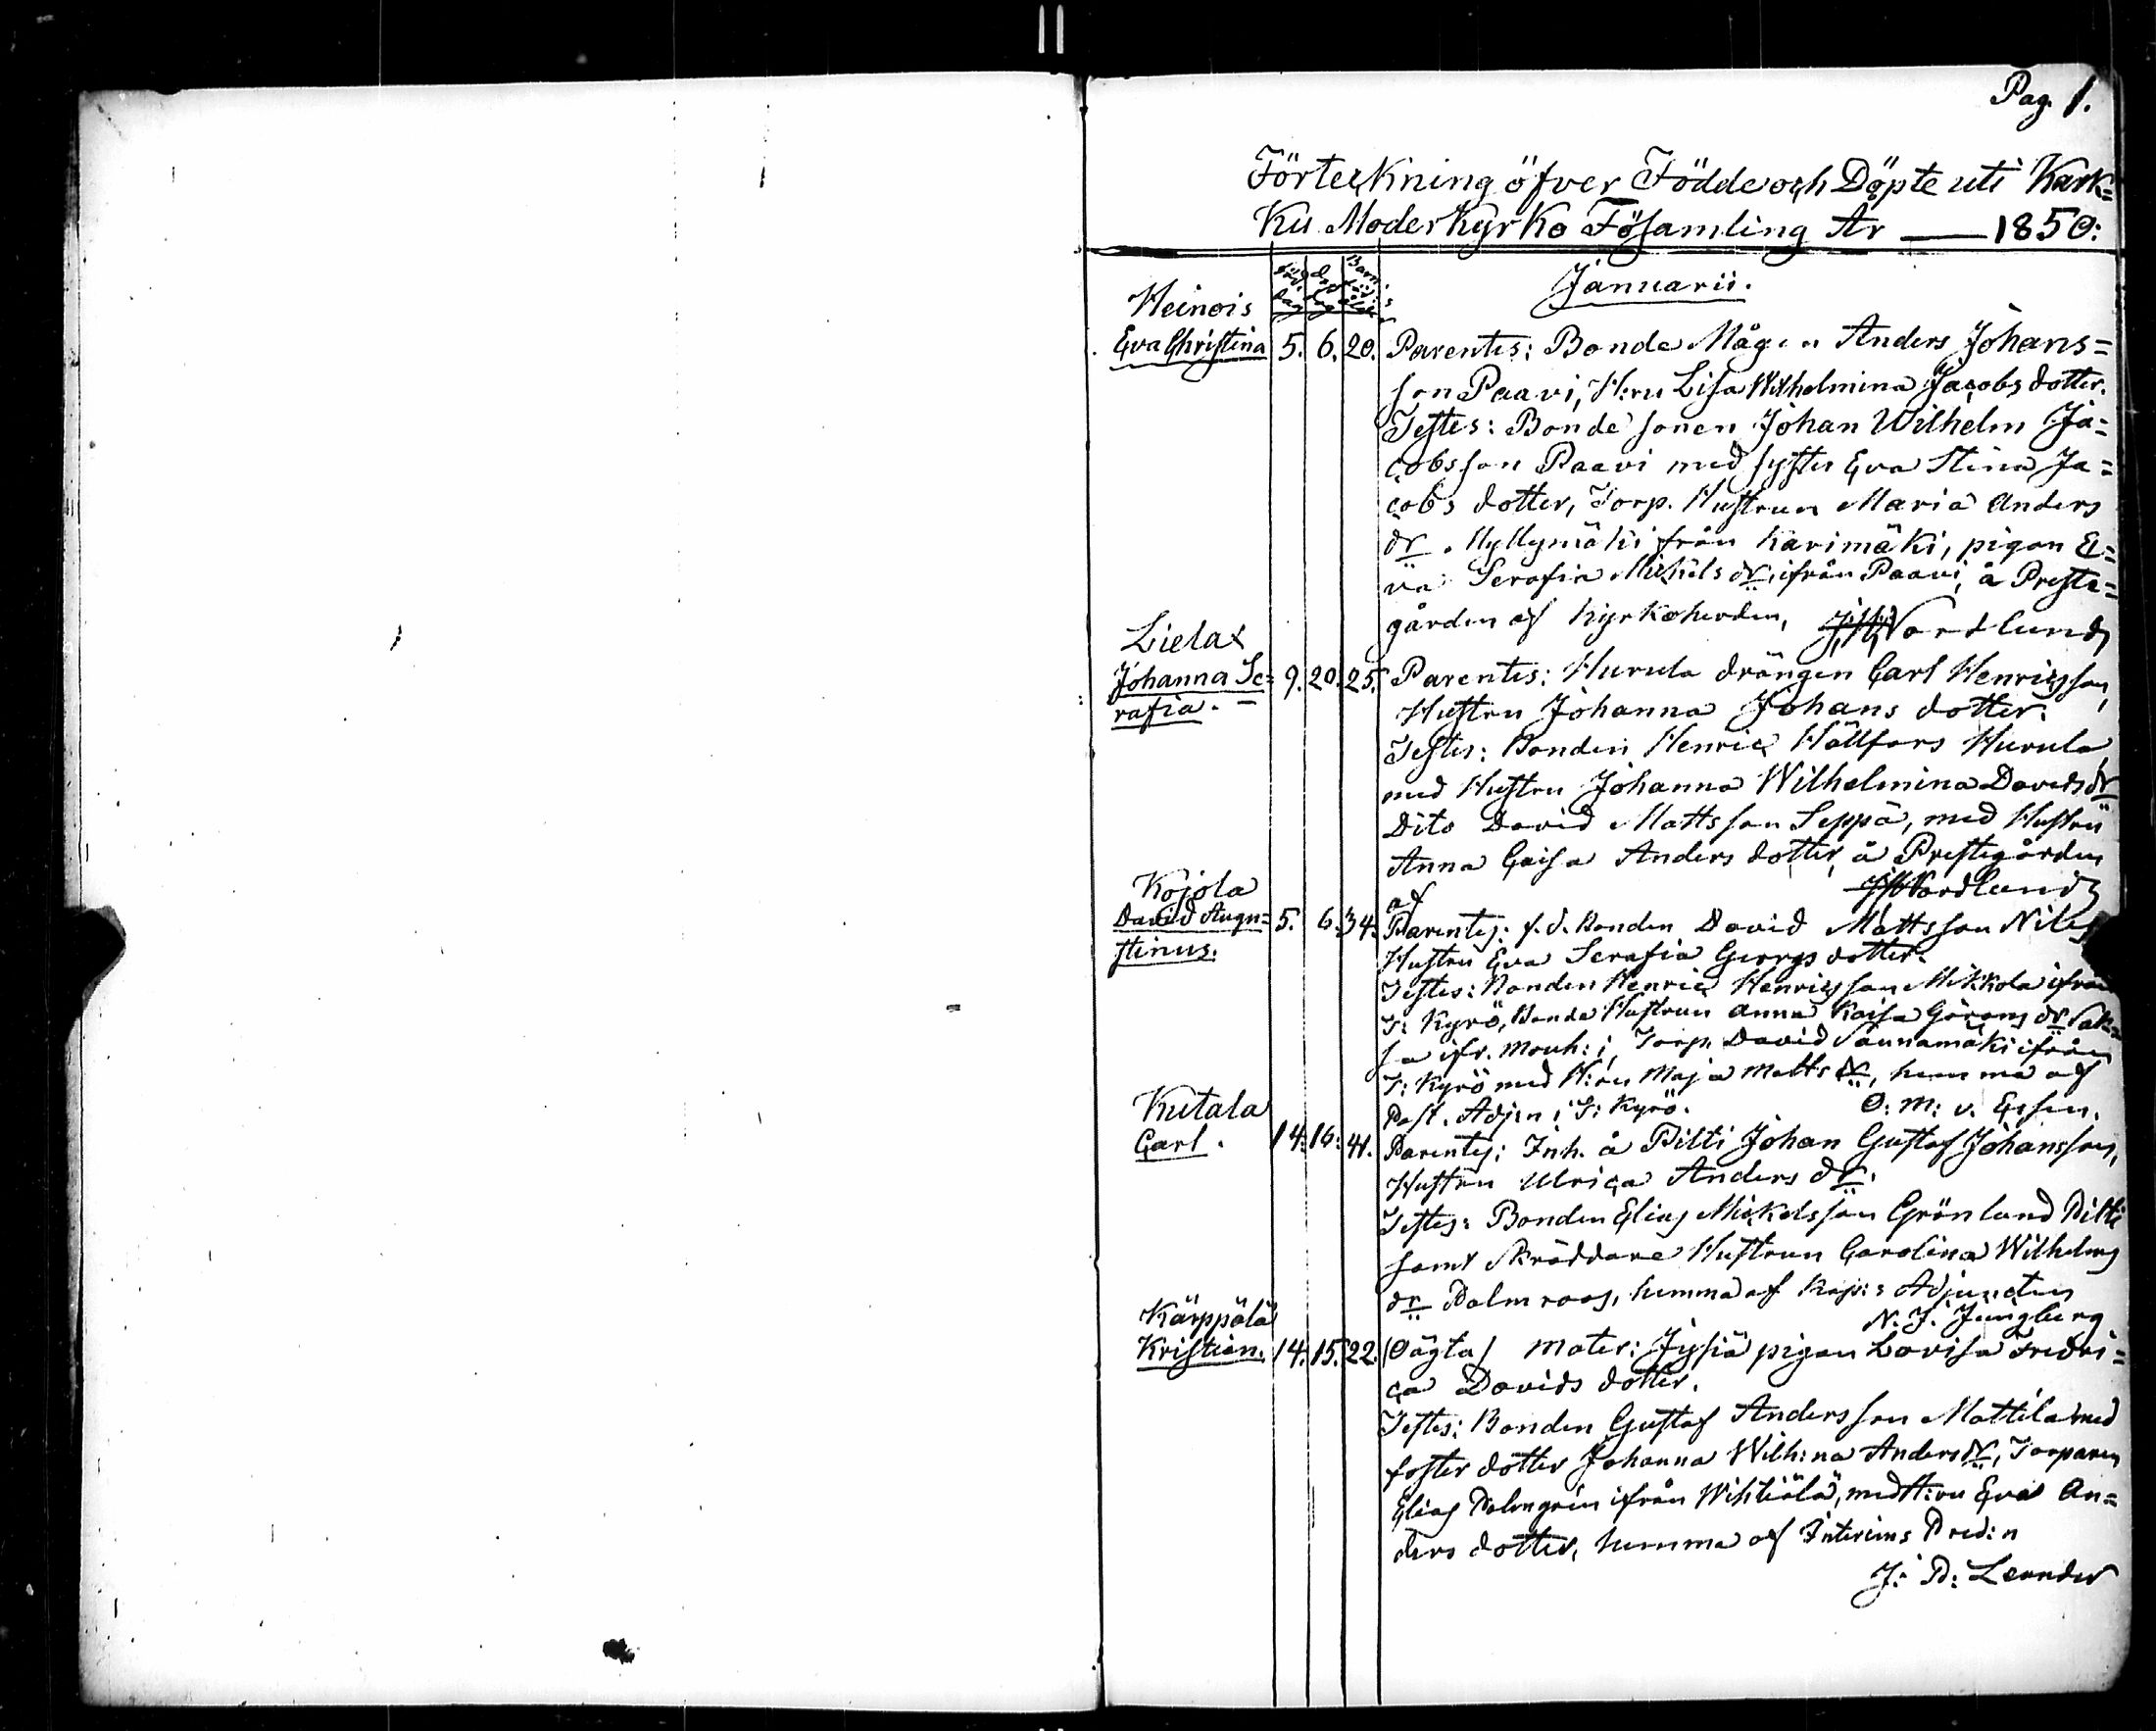 Pag. 1.
Förteckning öfver Födde och Döpte uti Kark=
Ku Moderkyrko Församling År — 1850:
Januarii.
Heinois
Eva Christina 5. 6. 20. Parentes: Bonde Mågen Anders Johans=
son Paavi, H:ru Lisa Wilhelmina Jacobs dotter.
Testes: Bonde sonen Johan Wilhelm Ja=
cobsson Paavi med syster Eva Stina Ja=
cobs dotter, Torp. Hustrun Maria Anders
dr. Myllymäki från Karimäki, pigan E=
va Serafia Michels dr, ifrån Paavi, å Preste=
gården af Kyrkoherden, Nordlund
Lielax
Johanna Se= 9. 20. 25. Parentes: Hurula drängen Carl Henricsson,
rafia. Hustru Johanna Johans dotter.
Testes: Bonden Henric Hällfors Hurula
med Hustru Johanna Wilhelmina Davids dr
Dito David Mattsson Seppä, med Hustru
Anna Caisa Anders dotter, å Prestegården
af Nordlund
Kojola
David Augu= 5. 6. 34. Parentes: f.d. Bonden David Mattsson
stinus. Hustru Eva Serafia Georgs dotter.
Testes: Bonden Henric Henricsson Mikkola ifrån
T: Kyrö, Bonde Hustrun Anna Kaisa Görans dr Sak=
sa ifr. Mouh:i, Torp. David Saunamäki ifrån
T: Kyrö med H:ru Maja Matts dr, hemma af
Past. Adj:n i T: Kyrö. O: M: v. Essen.
Kutala
Carl. 14. 16. 41. Parentes: Inh. å Pitti Johan Gustaf Johansson,
Hustru Ulrica Anders dr.
Testes: Bonden Elias Mickelsson Grönlund Pitti
samt Skräddare Hustrun Carolina Wilhelms
dr Palmroos, hemma af Kap:s Adjuncten
N. J. Ljungberg
Kärppälä
Kristian. 14. 15. 22. (Oägta) Mater: Jysiä pigan Lovisa Fredri=
ca Davids dotter.
Testes: Bonden Gustaf Andersson Mattila med
foster dotter Johanna Wilh:na Anders dr, Torparen
Elias Palmgrén ifrån Wihtiälä, med H:ru Eva An=
ders dotter, hemma af Interims Pred:n
J: P: Leander